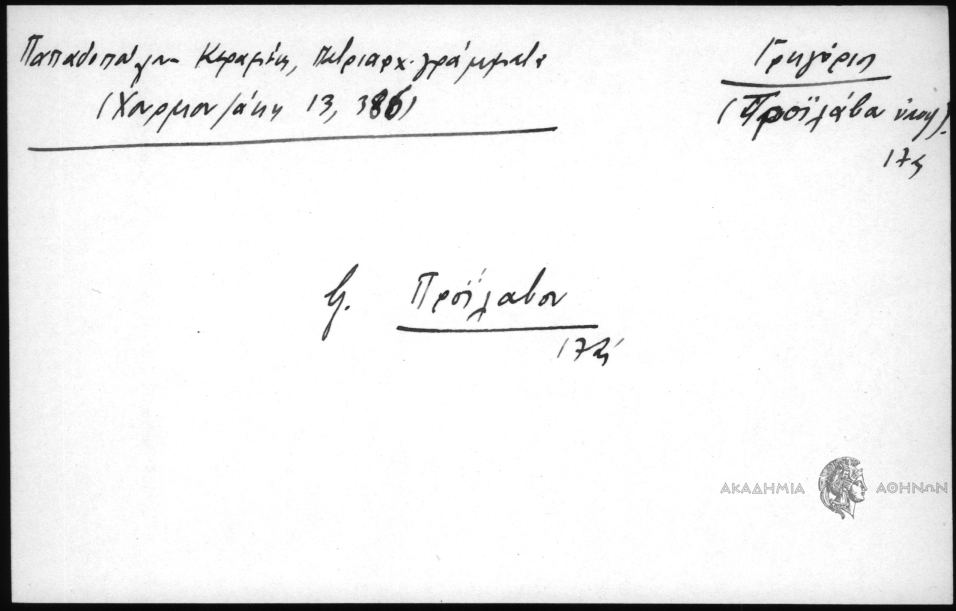 Παπαδοπούλου Κεραμέως, Πατριαρχ. γράμματα
(Χουρμουζάκη 13, 386)
Γρηγόριος
(Προϊλάβα
17ς
βλ. Προΐλαβον
17ς
ΑΚΑΔΗΜΙΑ ΑΘΗΝΩΝ